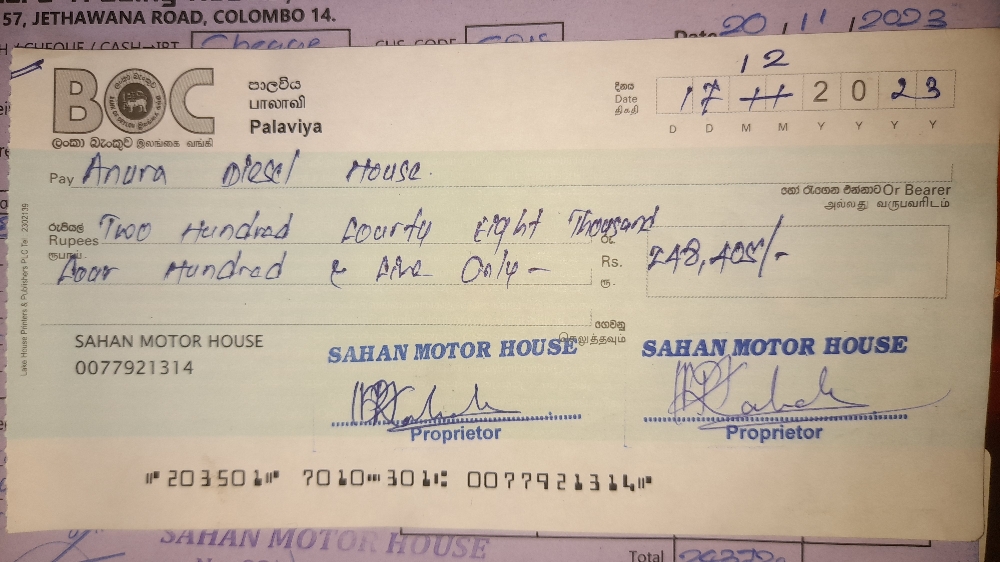 57, JETHAWANA ROAD, COLOMBO 14.
Date 20/11/2023
Cheque
BOC
ලංකා බැංකුව இலங்கை வங்கி
පාලවිය
பாலாவி
Palaviya
දිනය
Date
திகதி
12
17 11 2023
D D M M Y Y Y Y
Pay Anura Diesel House.
හෝ රැගෙන එන්නාට Or Bearer
அல்லது வருபவரிடம்
රුපියල් Two Hundred Fourty Eight Thousand
Rupees
ரூபாய் Four Hundred & Five Only -
රු.
Rs. 248,405/-
ரூ.
ගෙවනු
செலுத்தவும்
Lake House Printers & Publishers PLC Tel: 2302139
SAHAN MOTOR HOUSE
0077921314
SAHAN MOTOR HOUSE
Proprietor
SAHAN MOTOR HOUSE
Proprietor
⑈203501⑈ 7010⑉301⑆ 0077921314⑈
SAHAN MOTOR HOUSE
Total